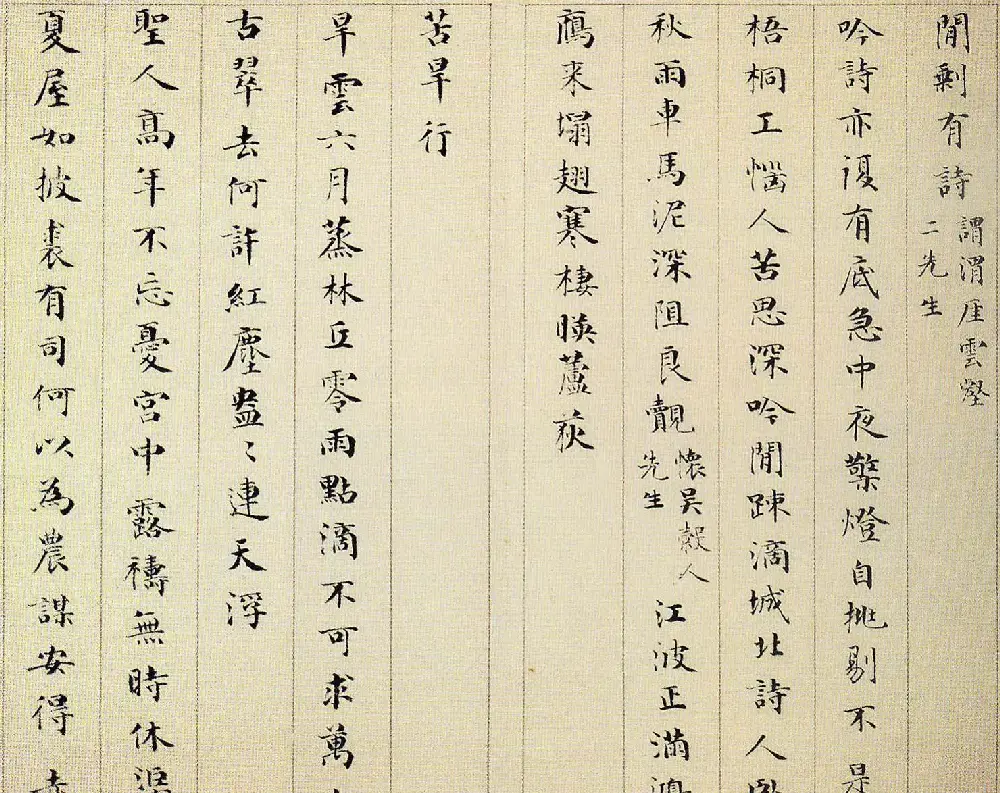 閒剩有詩謂渭厓雲壑二先生
吟詩亦復有底急中夜擎燈自挑剔不是
梧桐工惱人苦思深吟閒踈滴城北詩人臥
秋雨車馬泥深阻良覿懷吴穀人先生江波正滿鴻
鴈来塌翅寒棲暎蘆荻
苦旱行
旱雲六月蒸林丘零雨點滴不可求萬
古翠去何許紅塵盎〻連天浮
聖人高年不忘憂宮中露禱無時休深
夏屋如披裘有司何以為農謀安得